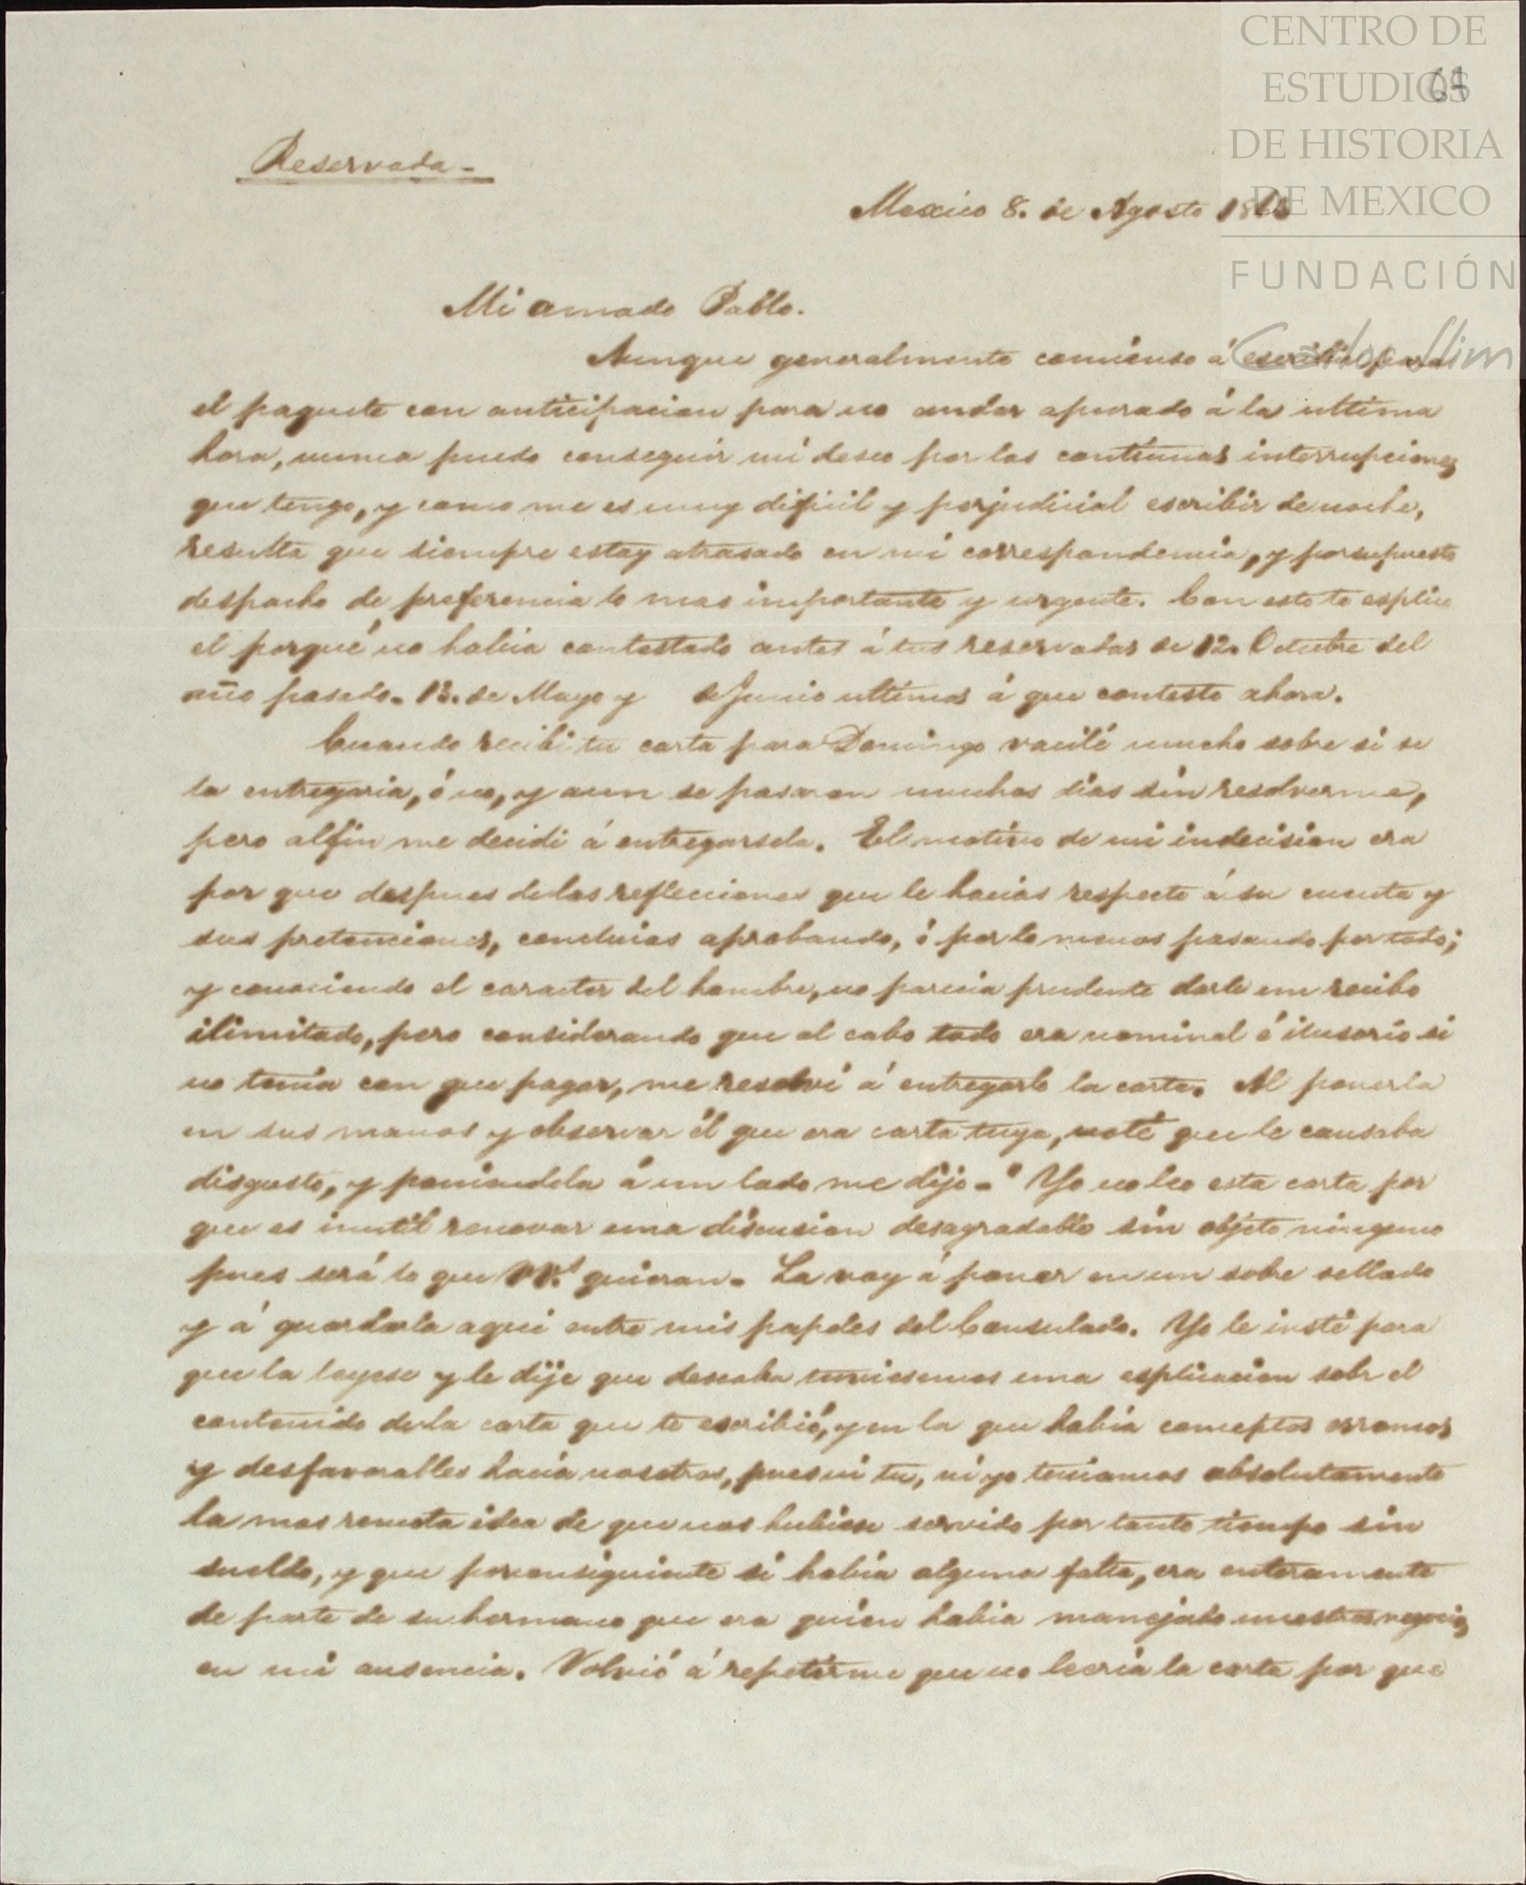 CENTRO DE
ESTUDIOS
DE HISTORIA
DE MEXICO
FUNDACIÓN
Carlos Slim
Reservada-
Mexico 8. de Agosto
Mi amado Pablo.
Aunque generalmente comienso á escribir para
el paquete con anticipacion para no andar apurado á la ultima
hora, nunca puedo conseguir mi deseo por las continuas interrupciones
que tengo, y como me es muy dificil y perjudicial escribir de noche,
resulta que siempre estoy atrasado en mi correspondencia, y por supuesto
despacho de preferencia lo mas importante y urgente. Con esto te esplico
el porqué no habia contestado antes á tus reservadas de 12. Octubre del
año pasado. 13. de Mayo y de Junio ultimos á que contesto ahora.
Cuando recibi tu carta para Domingo vacilé mucho sobre si se
la entregaria, ó no, y aun se pasaron muchos dias sin resolverme,
pero alfin me decidi á entregarsela. El motivo de mi indecision era
por que despues de las reflecciones que le hacias respecto á su cuenta y
sus pretenciones, concluias aprobando, ó por lo menos pasando por todo;
y conociendo el caracter del hombre, no parecia prudente darle un recibo
ilimitado, pero considerando que al cabo todo era nominal ó ilusorio si
no tenia con que pagar, me resolvi á entregarle la carta. Al ponerla
en sus manos y observar él que era carta tuya, noté que le causaba
disgusto, y poniendola á un lado me dijo-"Yo no leo esta carta por
que es inutil renovar una discusion desagradable sin objeto ninguno
pues será lo que VV.s quieran- La voy á poner en un sobre sellado
y á guardarla aqui entre mis papeles del Consulado. Yo le insté para
que la leyese y le dije que deseaba tuviesemos una esplicacion sobre el
contenido de la carta que te escribió, y en la que habia conceptos erroneos
y desfavorables hacia nosotros, pues ni tu, ni yo teniamos absolutamente
la mas remota idea de que nos hubiese servido por tanto tiempo sin
sueldo, y que por consiguiente si habia alguna falta, era enteramente
de parte de su hermano que era quien habia manejado nuestros negocios
en mi ausencia. Volvió á repetirme que no leeria la carta por que